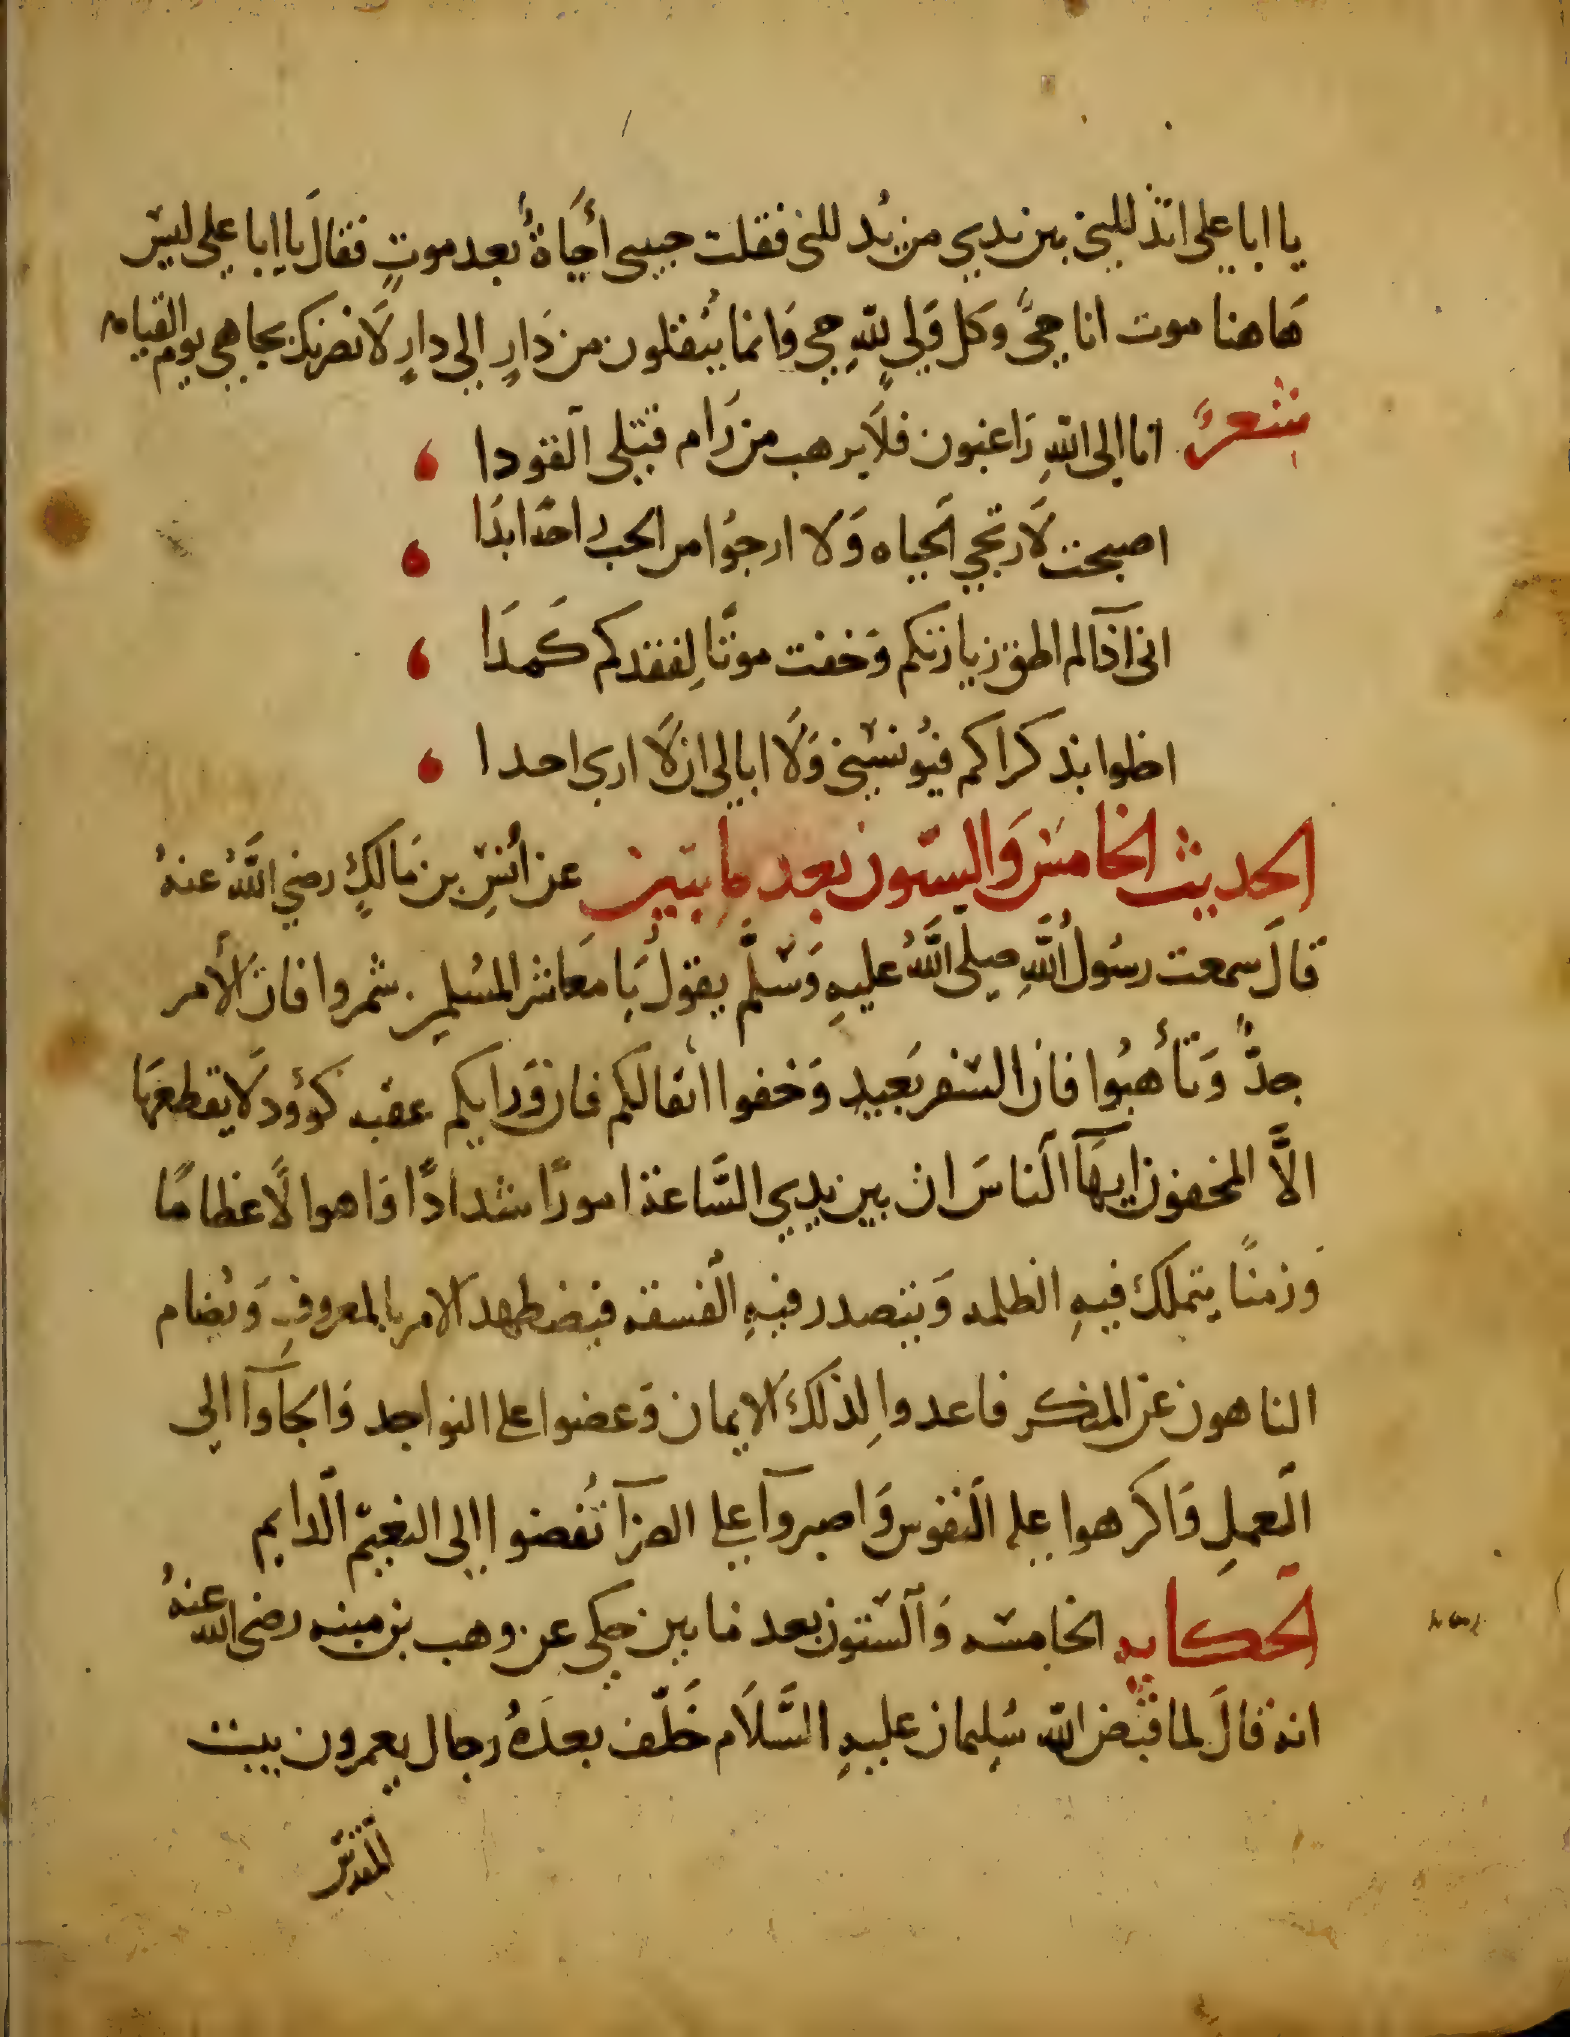 يا ابا علي اتذللني بين يدي من يُدللني فقلت حبيبى أَحَيَاةٌ بعد موتٍ فقالَ يا ابا علي ليس
هَاهنا موت انا حيٌّ وكل وَليٍ للهِ حي وَانما يُنقلون من دَارٍ الى دارٍ لَانصرنك بجاهي يوم القيامه
شعرٌ انا الى اللهِ رَاغبون فلَا يرهب من رَام قتلى القودا
اصبحت لَا ارتجي الحياه وَلا ارجُوا من الحب احدًا ابدَا
انى اذا لم اطق زيارتكم وَخفت موتًا لِفقدكم كَمدَا
اخلوا بذكراكم فيُونسني وَلَا ابالي ان لَا ارى احدا
الحديث الخامس وَالستون بعد مايتين عن أَنسِ بن مَالكٍ رضي اللَّهُ عنهُ
قالَ سمعت رسُول اللَّهِ صلّى اللَّهُ عليهِ وَسَلَّم يقولُ يَا مَعَاشر المسُلمين شمروا فان الأَمر
جدٌّ وَتأَهبُوا فان السفر بَعيد وَخففوا اثقالكم فان وَرَايكم عقبه كؤود لَا يقطعهَا
الَّا المخففون ايهَا الناسَ ان بين يدي السَّاعة امورًا شدادًا وَاهوالًا عظامًا
وَزمنًا يتملك فيهِ الظلمه وَيتصدر فيهِ الفسقه فيضطهد الامر بالمعروفِ وَيُضام
الناهون عَن المنكر فاعدوا لِذلكَ الايمان وَعضوا على النواجد وَالجَاوا الى
العملِ وَاكرهوا عليه النفوس وَاصبروا على الضرا تُفضوا الى النعيم الدايم
الحكايه الخامسه وَالستون بعد مايتين حكي عن وهب بن منبه رضى الله عنهُ
انه قالَ لما قبض الله سُليمان عليهِ السَّلَام خَلّف بعدَهُ رجال يعمرون بيت
المقدس